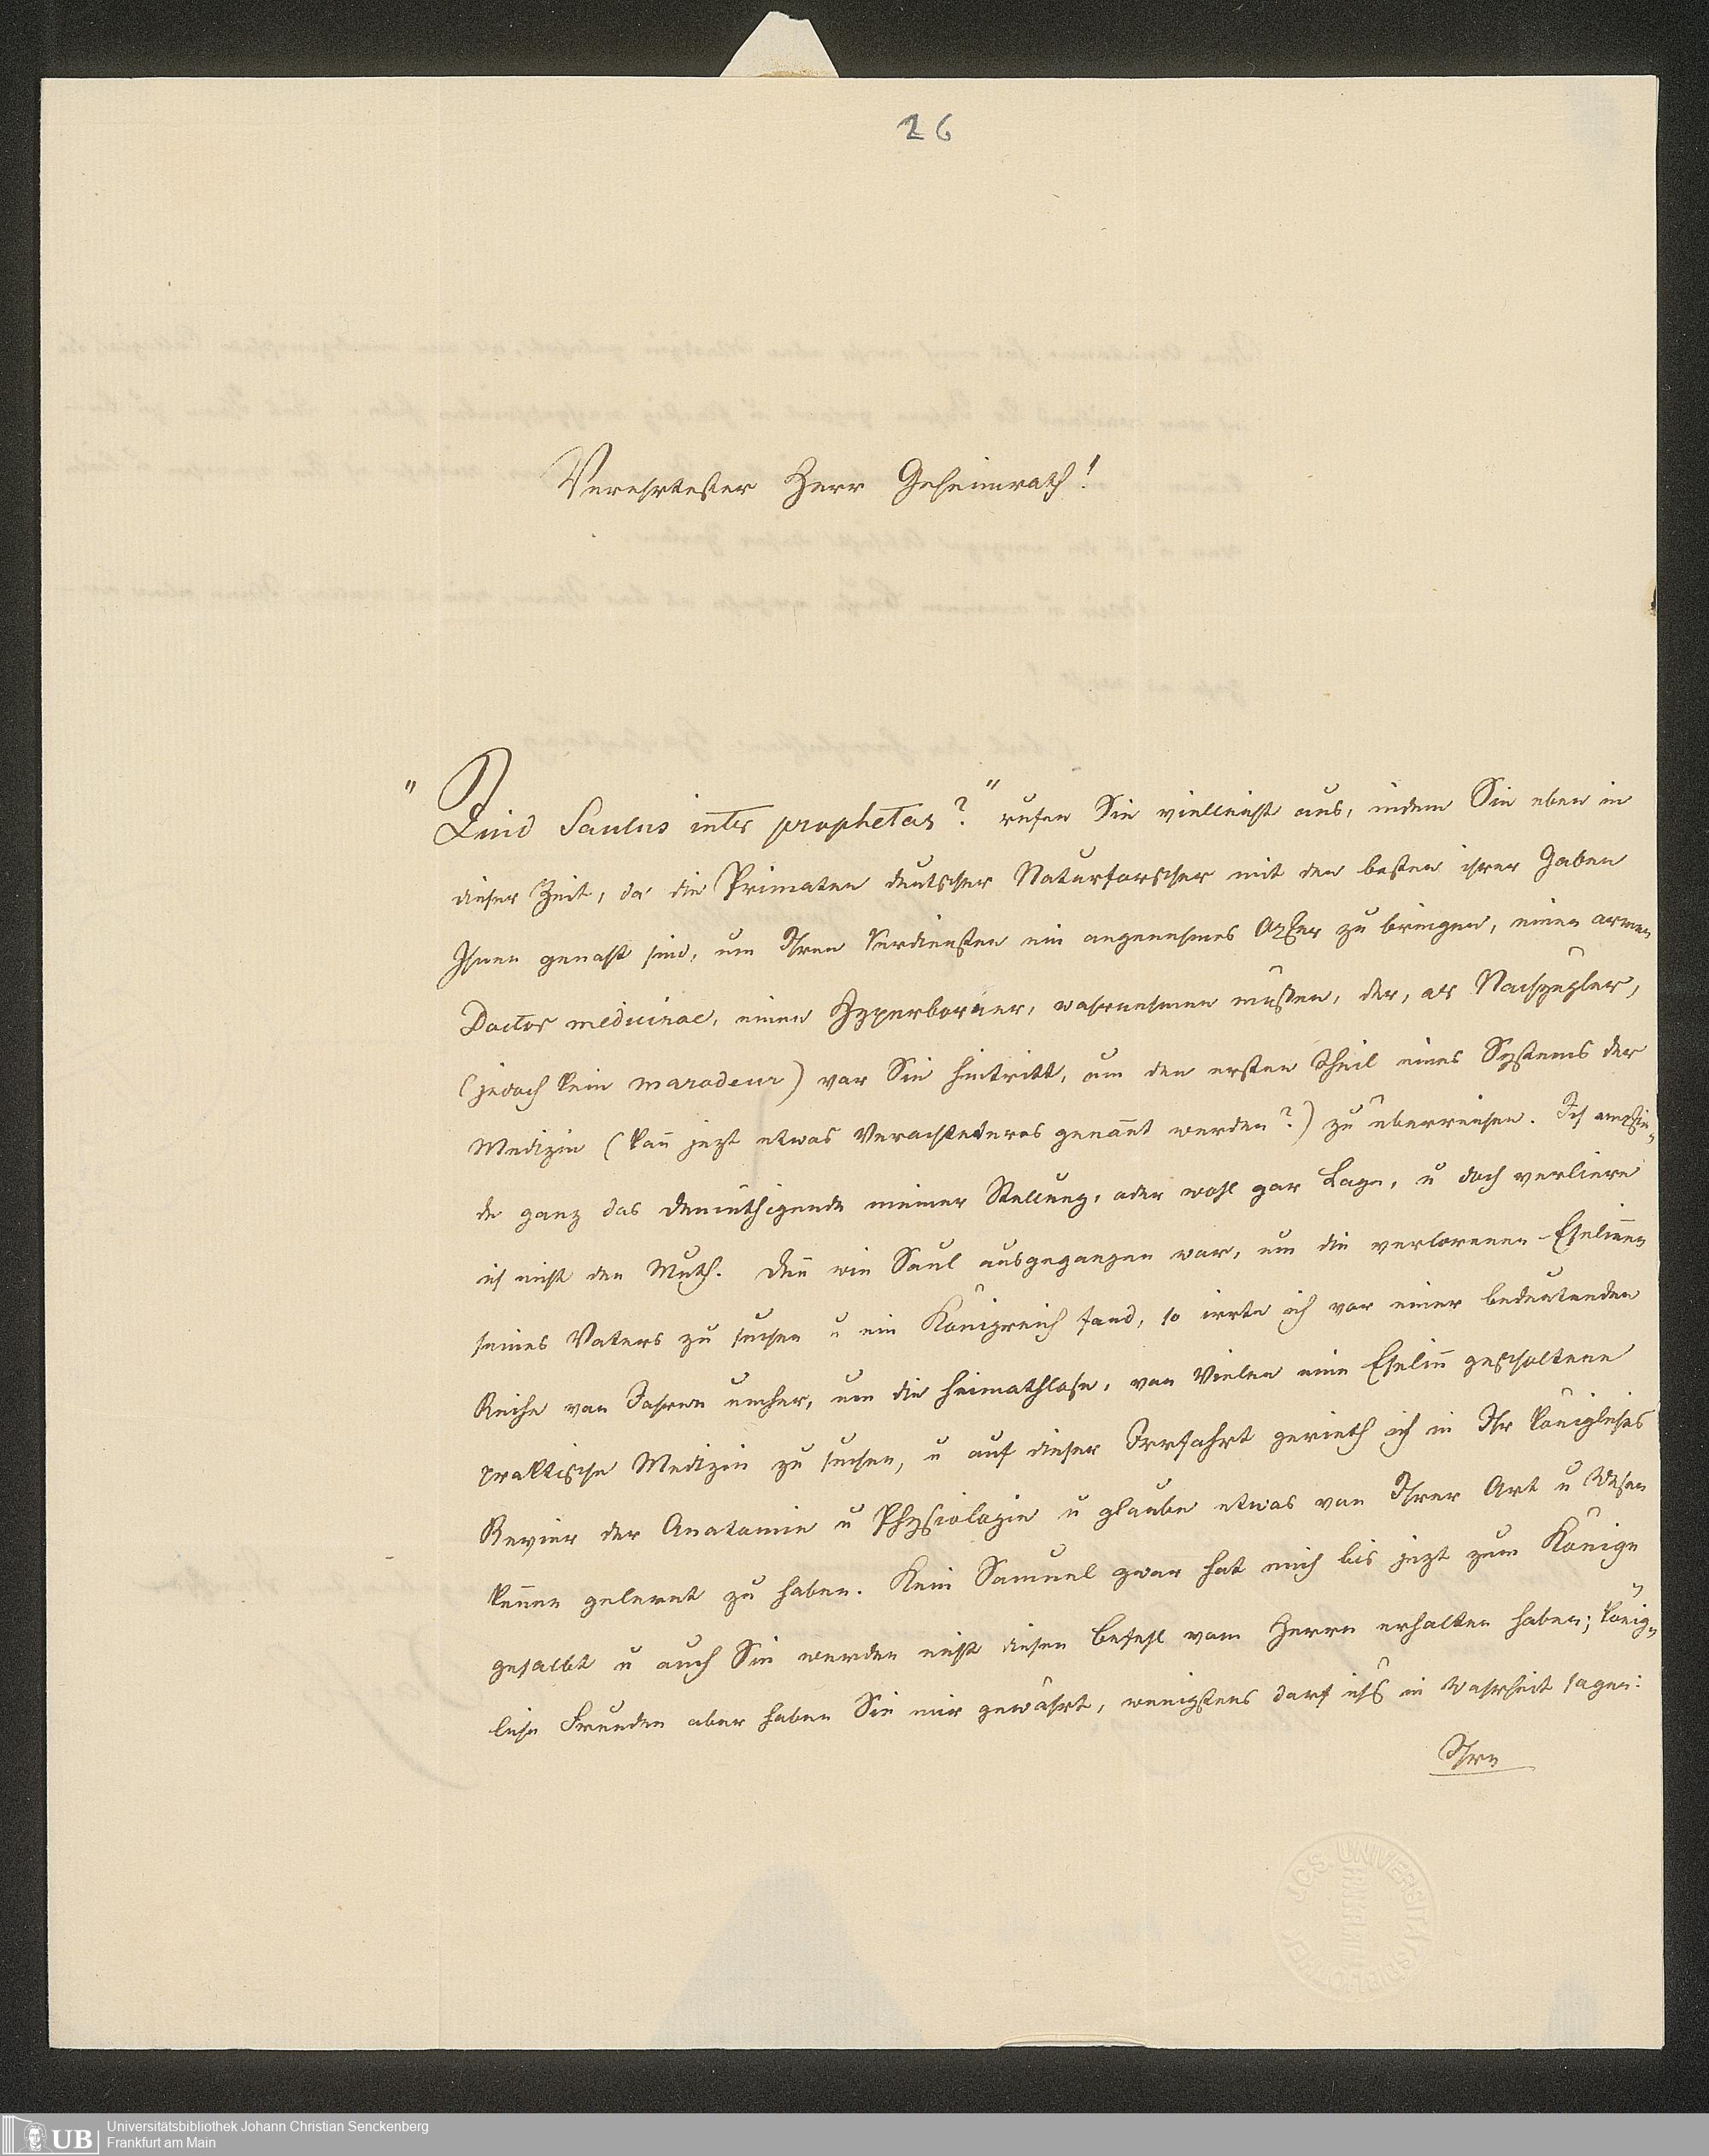 26
Verehrtester Herr Geheimrath!
"Quid Saulus inter prophetas?" rufen Sie vielleicht aus, indem Sie eben in
dieser Zeit, da die Primaten deutscher Naturforscher mit den besten ihrer Gaben
Ihnen genaht sind, um Ihren Verdiensten ein angenehmes Opfer zu bringen, einen armen
Doctor medicinae, einen Hyperboräer, wahrnehmen müssen, der, als Nachzügler,
(jedoch kein maradeur) vor Sie hintritt, um den ersten Theil eines Systems der
Medizin (kan̄ jezt etwas Verachteteres genan̄t werden?) zu überreichen. Ich empfin-
de ganz das Demüthigende meiner Stellung, oder wohl gar Lage, u doch verliere
ich nicht den Muth. Den̄ wie Saul ausgegangen war, um die verlorenen Eselin̄en
seines Vaters zu suchen u ein Königreich fand, so irrte ich vor einer bedeutenden
Reihe von Jahren umher, um die heimathlose, von Vielen eine Eselin̄ gescholtene
praktische Medizin zu suchen, u auf dieser Irrfahrt gerieth ich in Ihr königliches
Revier der Anatomie u Physiologie u glaube etwas von Ihrer Art u Wesen
ken̄en gelernt zu haben. Kein Samuel zwar hat mich bis jezt zum Könige
gesalbt u auch Sie werden nicht diesen Befehl vom Herrn erhalten haben; König-
liche Freuden aber haben Sie mir gewährt, wenigstens darf ichs in Wahrheit sagen:
Ihre
J.C.S. UNIVERSITÄTSBIBLIOTHEK
FRANKFURT
UB
Universitätsbibliothek Johann Christian Senckenberg
Frankfurt am Main